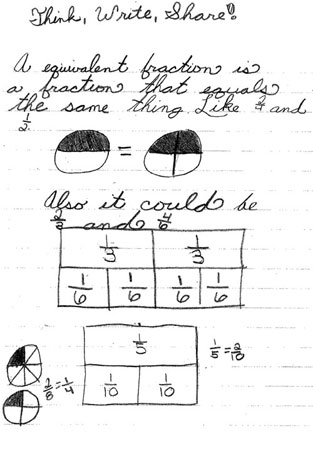 Think, Write, Share!
A equivalent fraction is
a fraction that equals
the same thing Like 2/4 and
1/2.
=
Also it could be
2/3 and 4/6
1/3 1/3
1/6 1/6 1/6 1/6
1/5
1/10 1/10
1/5 = 2/10
2/8 = 1/4